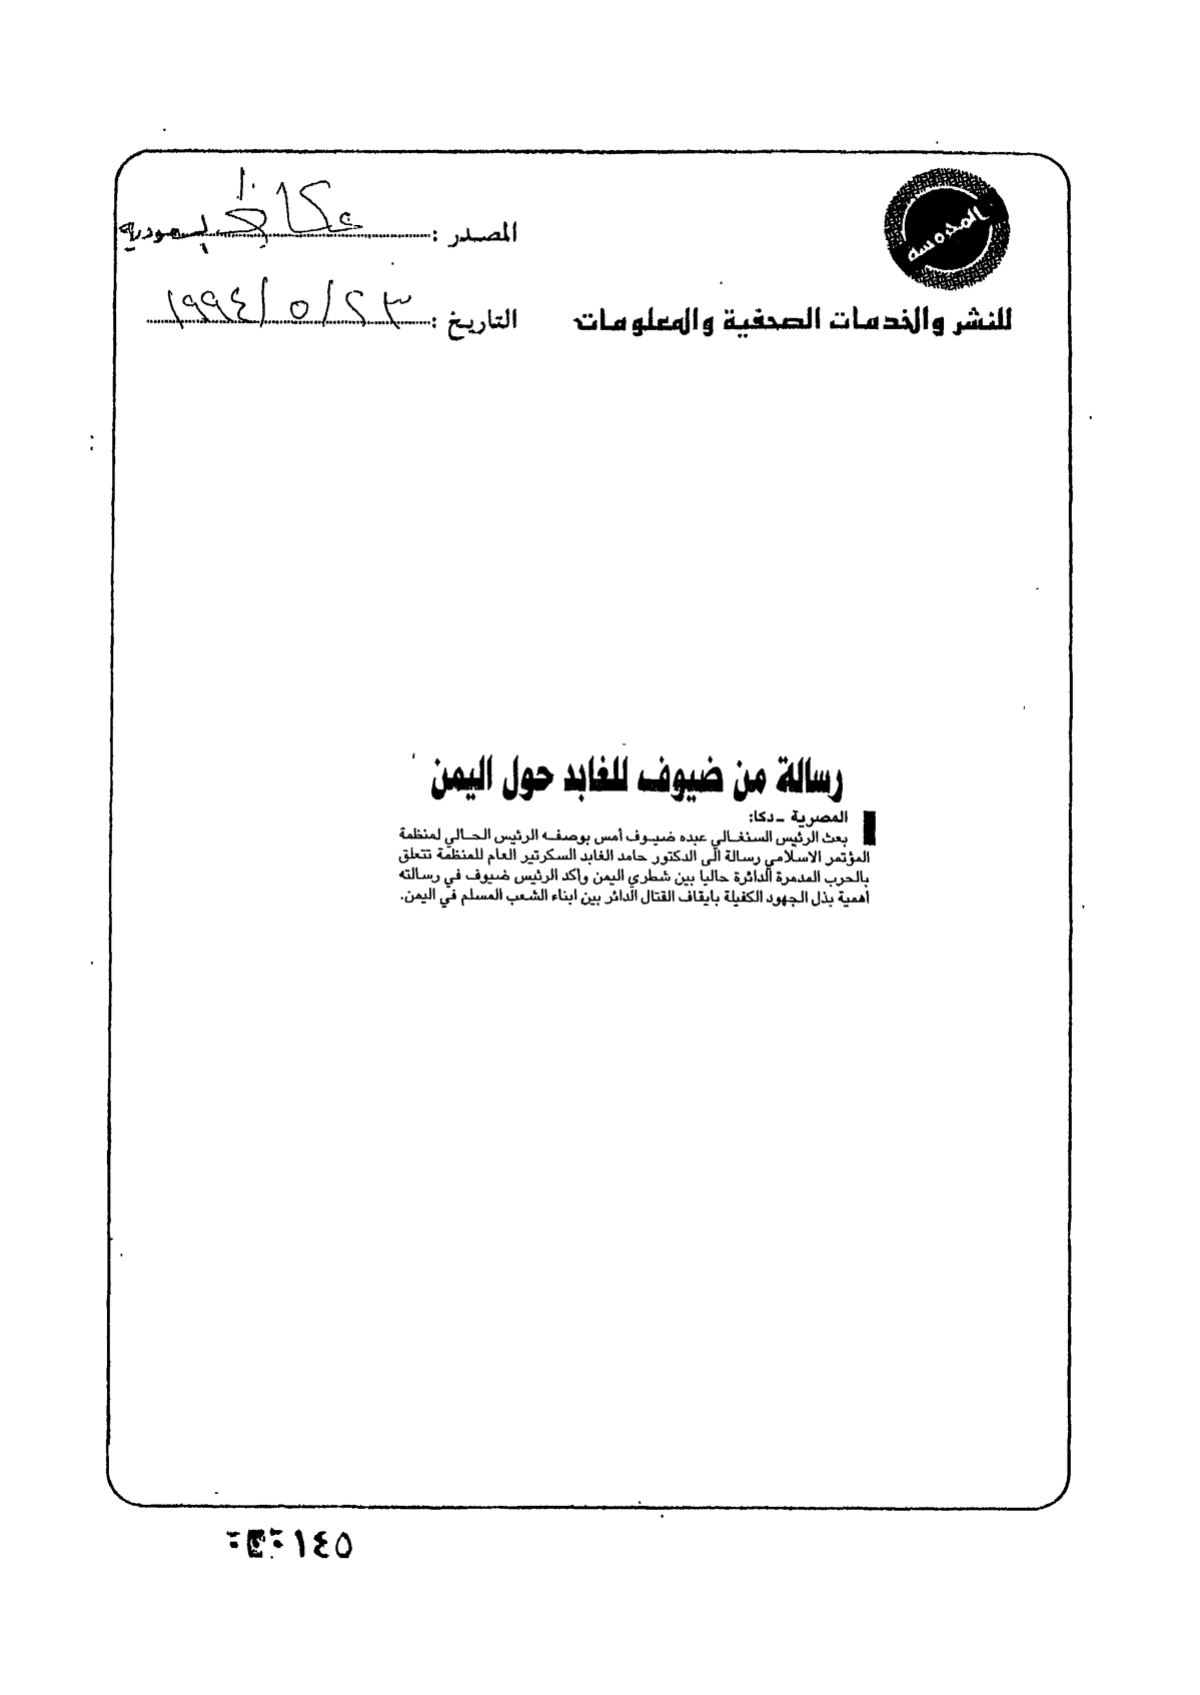 المحروسة
المصدر : عكاظ السعودية
للنشر والخدمات الصحفية والمعلومات
التاريخ : ٢٣ / ٥ / ١٩٩٤
رسالة من ضيوف للغابد حول اليمن
المصرية - دكا:
بعث الرئيس السنغالي عبده ضيوف أمس بوصفه الرئيس الحالي لمنظمة
المؤتمر الاسلامي رسالة الى الدكتور حامد الغابد السكرتير العام للمنظمة تتعلق
بالحرب المدمرة الدائرة حاليا بين شطري اليمن واكد الرئيس ضيوف في رسالته
أهمية بذل الجهود الكفيلة بايقاف القتال الدائر بين ابناء الشعب المسلم في اليمن.
١٤٥